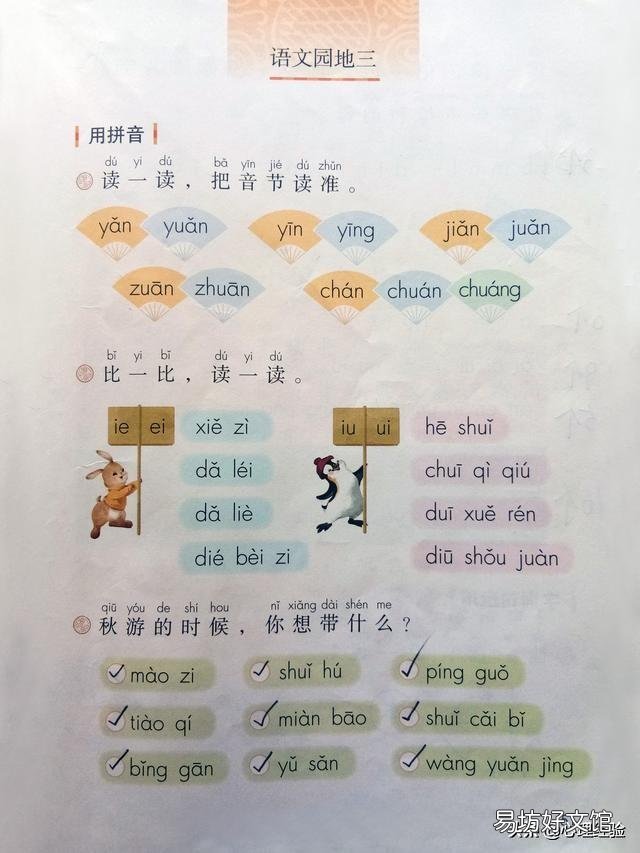 语文园地三
用拼音
dú yi dú bǎ yīn jié dú zhǔn
读一读，把音节读准。
yǎn yuǎn yīn yīng jiǎn juǎn
zuān zhuān chán chuán chuáng
bǐ yi bǐ dú yi dú
比一比，读一读。
ie ei xiě zì iu ui hē shuǐ
dǎ léi chuī qì qiú
dǎ liè duī xuě rén
dié bèi zi diū shǒu juàn
qiū yóu de shí hou nǐ xiǎng dài shén me
秋游的时候，你想带什么？
mào zi shuǐ hú píng guǒ
tiào qí miàn bāo shuǐ cǎi bǐ
bǐng gān yǔ sǎn wàng yuǎn jìng
易坊好文馆